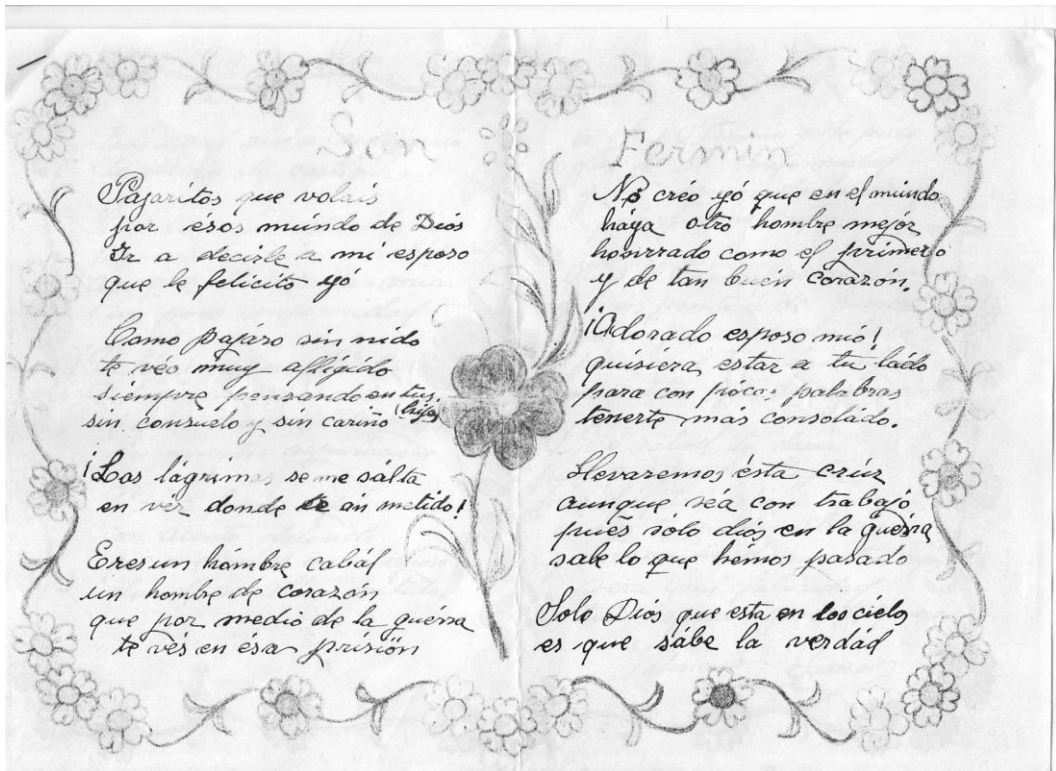 San Fermin
Pajaritos que voláis
por ésos múndo de Dios
Ir a decirle a mi esposo
que le felicito yó
Como pajáro sin nido
te véo muy aflígído
siémpre pensando en tus
(hijos)
sin consuelo y sin cariño
¡Las lágrimas se me sálta
en ver donde te án metído!
Eres un hómbre cabál
un hombre de corazón
que por medio de la guérra
te vés en ésa prisión
No créo yó que en el múndo
háya otro hombre mejór
honrrado como el primero
y de tan buén corazón.
¡Adorado esposo mió!
quisiéra estar a tu ládo
para con pocas palabras
tenerte más consoládo.
Llevaremos ésta crúz
aunque séa con trabajó
pués sólo diós en la guérra
sabe lo que hémos pasado
Solo Dios que esta en los cielos
es que sábe la verdád